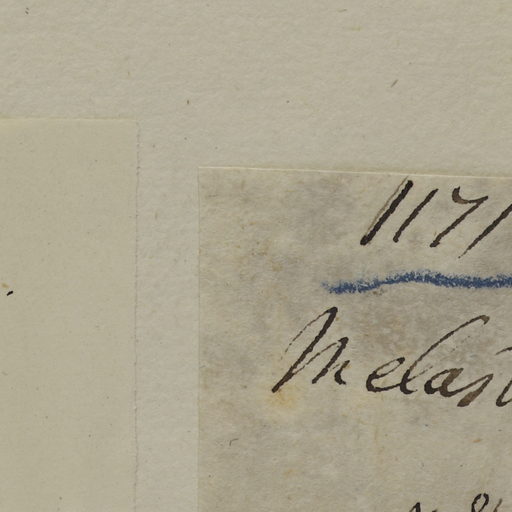 1171
Melast